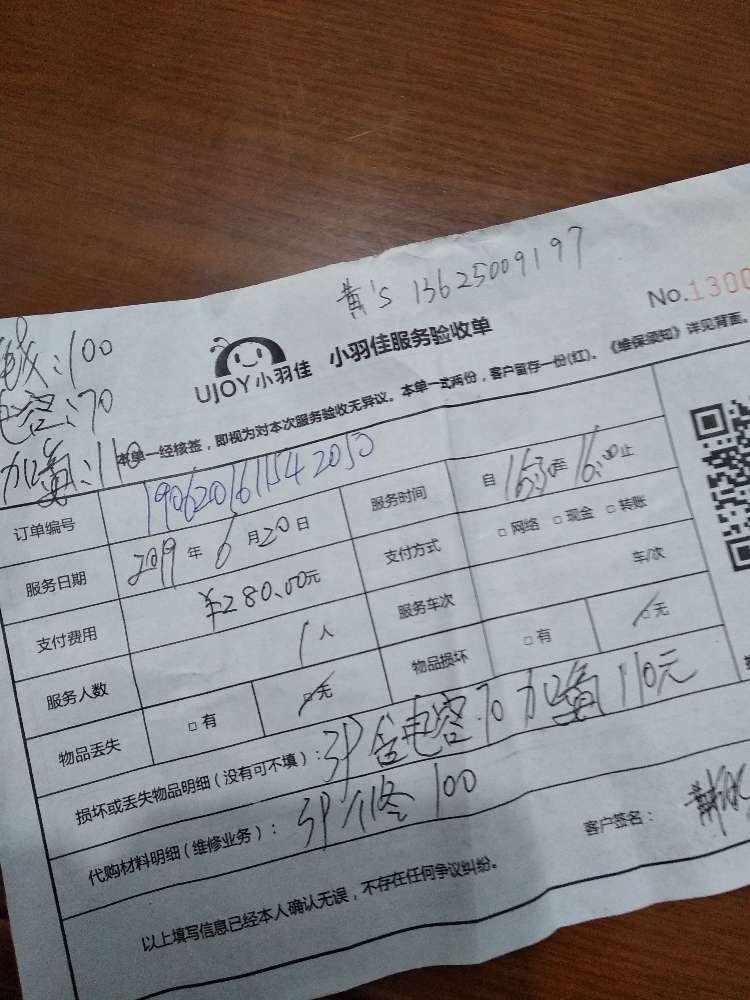 黄's 13625009197
No.1300
UJOY小羽佳 小羽佳服务验收单
:100
电容:70
加氟:110
本单一经核签，即视为对本次服务验收无异议。本单一式两份，客户留存一份(红)。《维保须知》详见背面。
订单编号 1906201611542050
服务时间 自 16:30至 16:00止
服务日期 2019 年 6 月 20 日
支付方式 □ 网络 □ 现金 □ 转账
支付费用 ¥280.00元
服务车次 车/次
服务人数 1 人
物品损坏 □ 有 □ 无
物品丢失 □ 有 □ 无
损坏或丢失物品明细（没有可不填）: 3P 电容70 加氟110元
代购材料明细（维修业务）: 3P 修 100
客户签名：
以上填写信息已经本人确认无误，不存在任何争议纠纷。